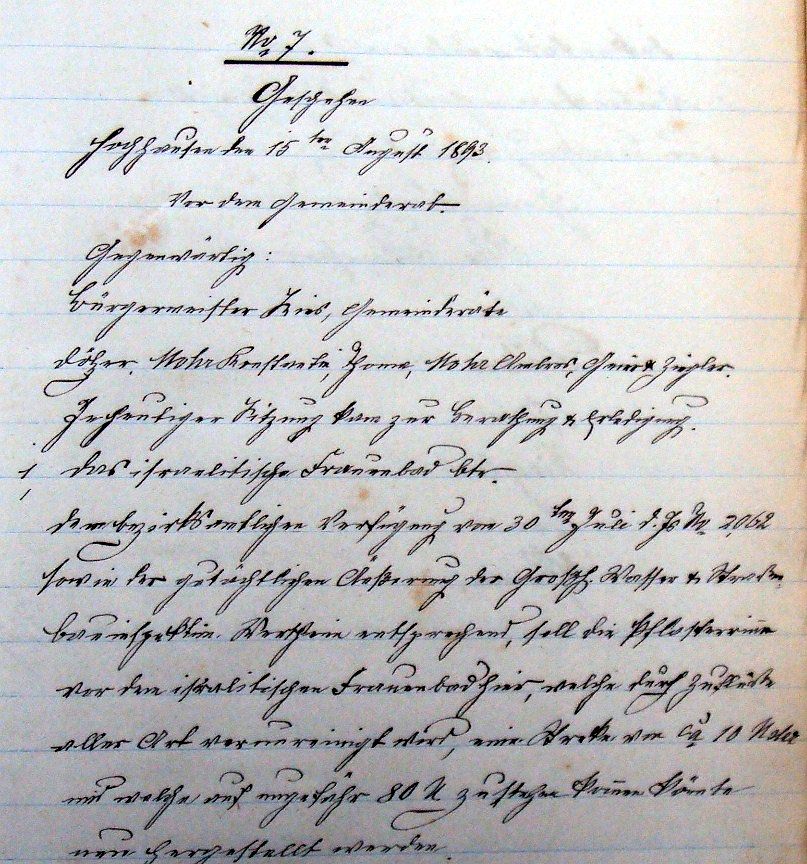 No 7.
Geschehen
Hochhausen den 15ten August 1893.
Vor dem Gemeinderat.
Gegenwärtig:
Bürgermeister Kies, Gemeinderäte
Mohr Konstantin, Thoma, Mohr Ambros, Geier & Ziegler.
In heutiger Sitzung kam zur Berathung & Erledigung.
1, das israelitische Frauenbad btr.
dem bezirksamtlichen Verfügung vom 30ten Juli d. Js No 2062
sowie der gutächtlichen Äußerung der Großh. Wasser & Straßen-
bauinspektion Wertheim entsprechend, soll die Pflasterrinne
vor dem israelitischen Frauenbad hier, welche durch Zuflüsse
aller Art verunreinigt wird, eine Strecke von ca 10 Meter
und welche auf ungefähr 80 M zu stehen kommen könnte
neu hergestellt werden.